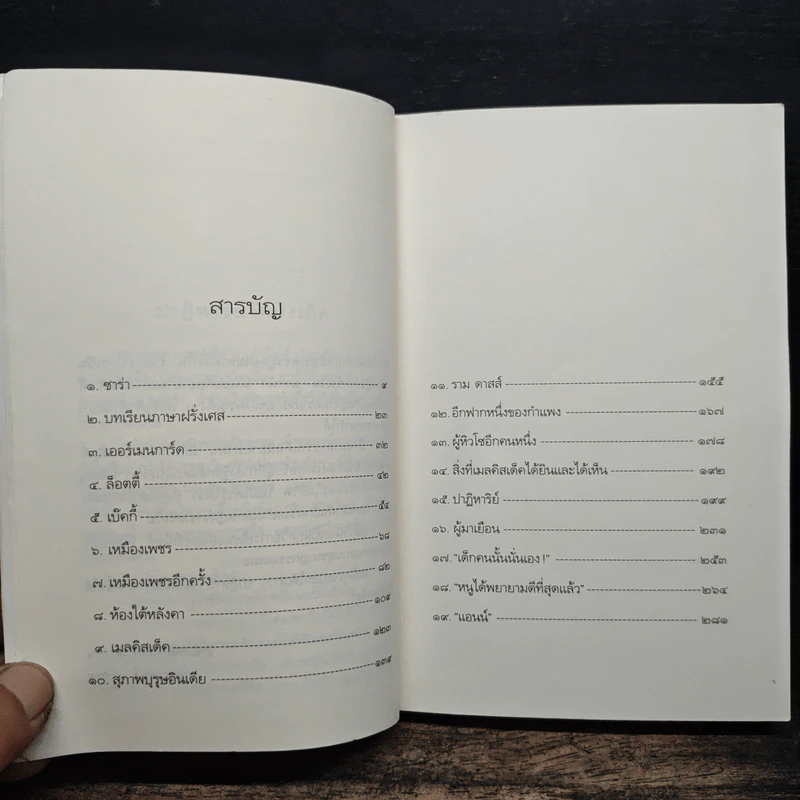 สารบัญ
๑. ซาร่า ๙
๒. บทเรียนภาษาฝรั่งเศส ๒๓
๓. เออร์เมนการ์ด ๓๒
๔. ล็อตตี้ ๔๒
๕. เบ๊คกี้ ๕๔
๖. เหมืองเพชร ๖๘
๗. เหมืองเพชรอีกครั้ง ๘๒
๘. ห้องใต้หลังคา ๑๐๙
๙. เมลคิสเด็ค ๑๒๓
๑๐. สุภาพบุรุษอินเดีย ๑๓๙
๑๑. ราม ดาสส์ ๑๕๕
๑๒. อีกฟากหนึ่งของกำแพง ๑๖๗
๑๓. ผู้หิวโซอีกคนหนึ่ง ๑๗๘
๑๔. สิ่งที่เมลคิสเด็คได้ยินและได้เห็น ๑๙๒
๑๕. ปาฏิหาริย์ ๑๙๙
๑๖. ผู้มาเยือน ๒๓๑
๑๗. "เด็กคนนั้นนั่นเอง !" ๒๕๓
๑๘. "หนูได้พยายามดีที่สุดแล้ว" ๒๖๔
๑๙. "แอนน์" ๒๘๑